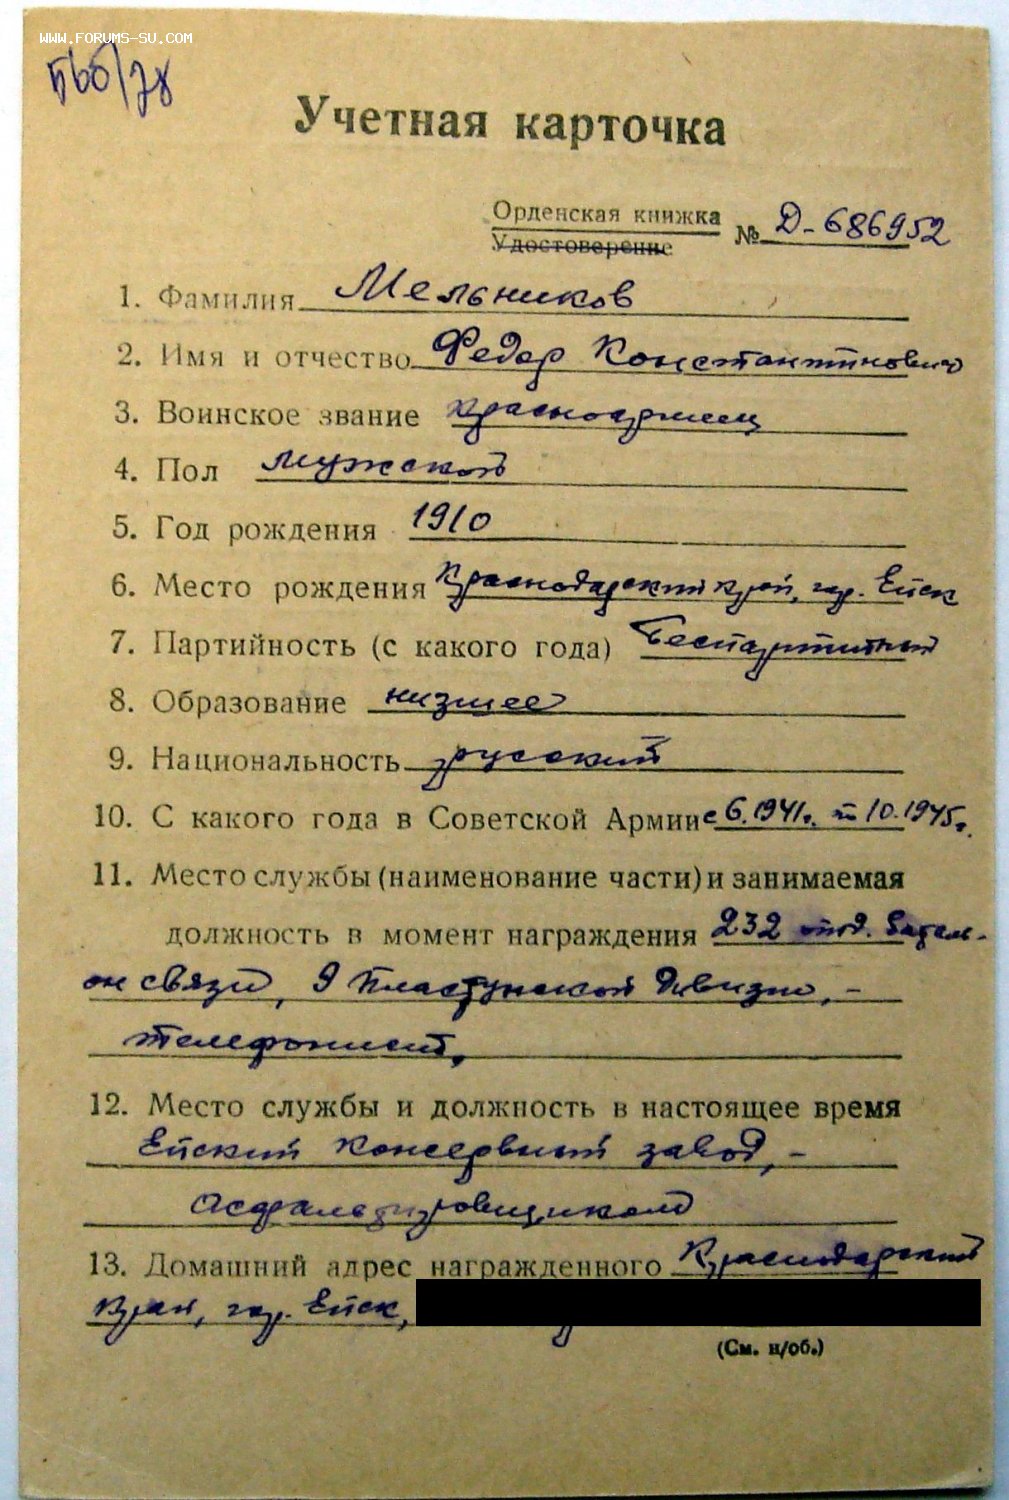 WWW.FORUMS-SU.COM
Учетная карточка
Орденская книжка
Удостоверение
№ Д-686952
1. Фамилия Мельников
2. Имя и отчество Федор Константинович
3. Воинское звание красноармеец
4. Пол мужской
5. Год рождения 1910
6. Место рождения Краснодарский край, гор. Ейск
7. Партийность (с какого года) Беспартийный
8. Образование низшее
9. Национальность русский
10. С какого года в Советской Армии с 6.1941г. по 10.1945г.
11. Место службы (наименование части) и занимаемая
должность в момент награждения 232 отд. баталь-
он связи, 9 Пластунской дивизии, -
телефонист.
12. Место службы и должность в настоящее время
Ейский консервный завод, -
Асфальтировщиком
13. Домашний адрес награжденного Краснодарский
край, гор. Ейск,
(См. н/об.)